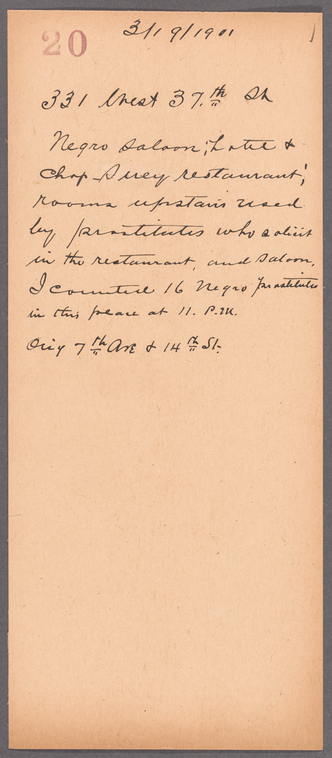 20
3/19/1901
331 West 37.th St
Negro saloon; hotel &
Chop-Suey restaurant;
rooms upstairs used
by prostitutes who solicit
in the restaurant, and saloon,
I counted 16 Negro prostitutes
in this place at 11. P.M.
7th Ave & 14th St.